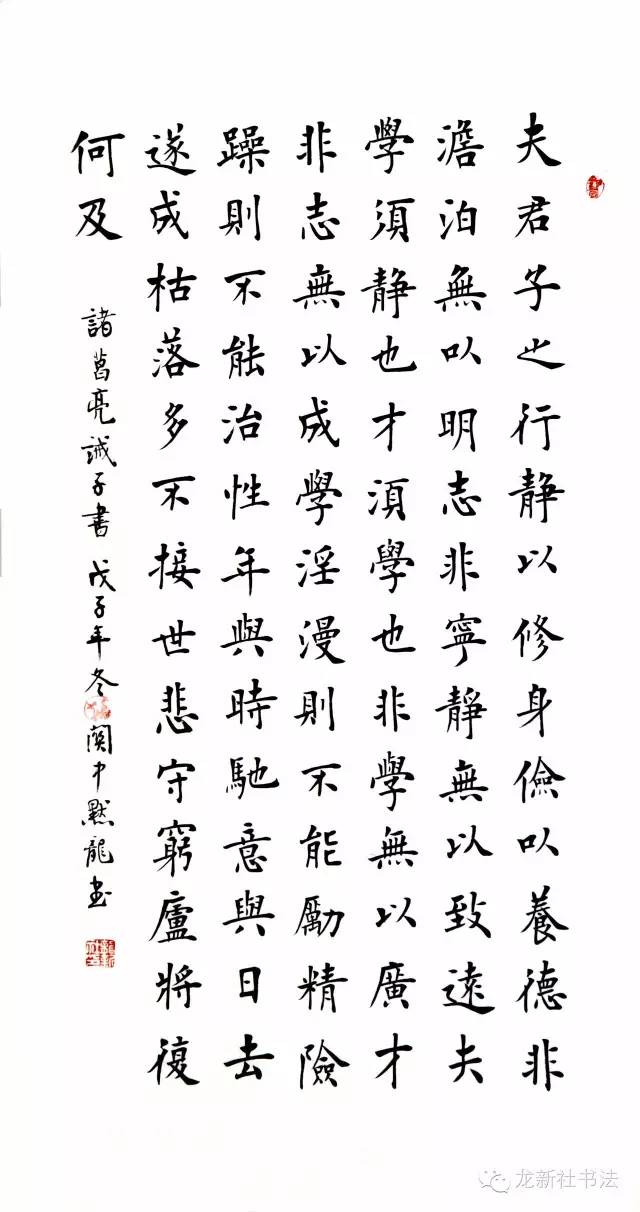 夫君子之行静以修身儉以養德非
澹泊無以明志非寧靜無以致遠夫
學須静也才須學也非學無以廣才
非志無以成學淫漫則不能勵精險
躁則不能治性年與時馳意與日去
遂成枯落多不接世悲守窮廬將復
何及
諸葛亮誡子書 戊子年冬 關中默龍書
龙新社书法